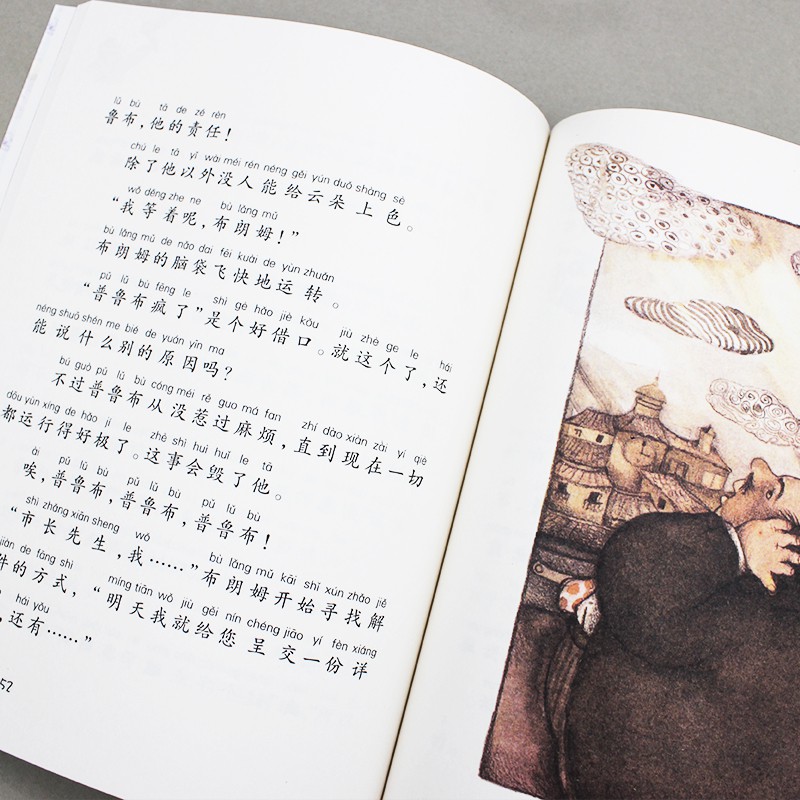 lǔ bù tā de zé rèn
鲁布，他的责任！
chú le tā yǐ wài méi rén néng gěi yún duǒ shàng sè
除了他以外没人能给云朵上色。
wǒ děng zhe ne bù lǎng mǔ
“我等着呢，布朗姆！”
bù lǎng mǔ de nǎo dai fēi kuài de yùn zhuǎn
布朗姆的脑袋飞快地运转。
pǔ lǔ bù fēng le shì gè hǎo jiè kǒu jiù zhè ge le hái
“普鲁布疯了”是个好借口。就这个了，还
néng shuō shén me bié de yuán yīn ma
能说什么别的原因吗？
bú guò pǔ lǔ bù cóng méi rě guo má fan zhí dào xiàn zài yí qiè
不过普鲁布从没惹过麻烦，直到现在一切
dōu yùn xíng de hǎo jí le zhè shì huì huǐ le tā
都运行得好极了。这事会毁了他。
ài pǔ lǔ bù pǔ lǔ bù pǔ lǔ bù
唉，普鲁布，普鲁布，普鲁布！
shì zhǎng xiān sheng wǒ bù lǎng mǔ kāi shǐ xún zhǎo jiě
“市长先生，我……”布朗姆开始寻找解
jiàn de fāng shì míng tiān wǒ jiù gěi nín chéng jiāo yí fèn xiáng
件的方式，“明天我就给您呈交一份详
hái yǒu
，还有……”
52